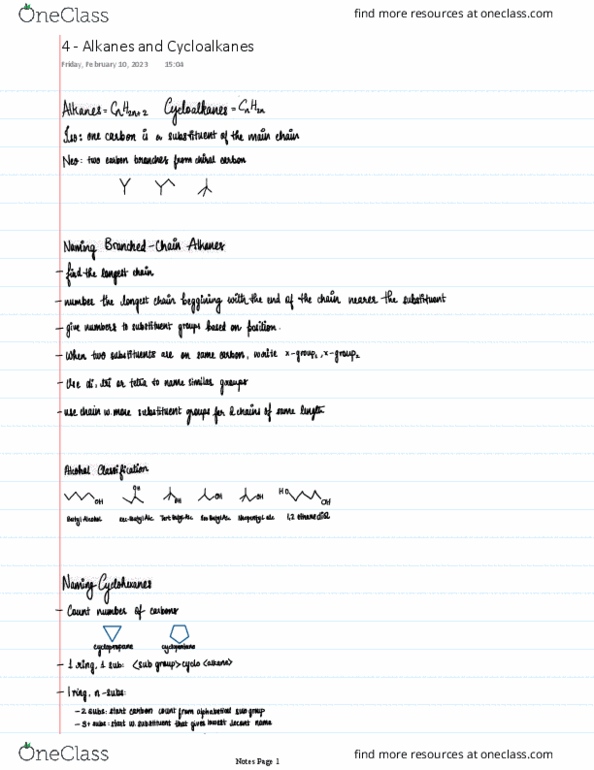 OneClass
find more resources at oneclass.com
4 - Alkanes and Cycloalkanes
Friday, February 10, 2023 15:04
Alkanes = CnH2n+2 Cycloalkanes = CnH2n
Iso: one carbon is a substituent of the main chain
Neo: two carbon branches from chiral carbon
Naming Branched-Chain Alkanes
- find the longest chain
- number the longest chain beggining with the end of the chain nearer the substituent
- give numbers to substituent groups based on position.
- When two substituents are on same carbon, write x-group1, x-group2
- Use di, tri or tetra to name similar groups
- use chain w. more substituent groups for 2 chains of same length
Alcohol Classification
OH OH OH OH OH HO OH
Butyl Alcohol Sec-Butyl Alc. Tert Butyl Alc. Iso Butyl Alc. Neopentyl alc. 1,2
Naming Cyclohexanes
- Count number of carbons
cyclopropane cyclopentane
- 1 ring, 1 sub: <sub group> cyclo <alkane>
- 1 ring, n-subs:
- 2 subs: start carbon count from alphabetical sub group
- 3+ subs: start w. substituent that gives lowest name
OneClass
Notes Page 1
find more resources at oneclass.com